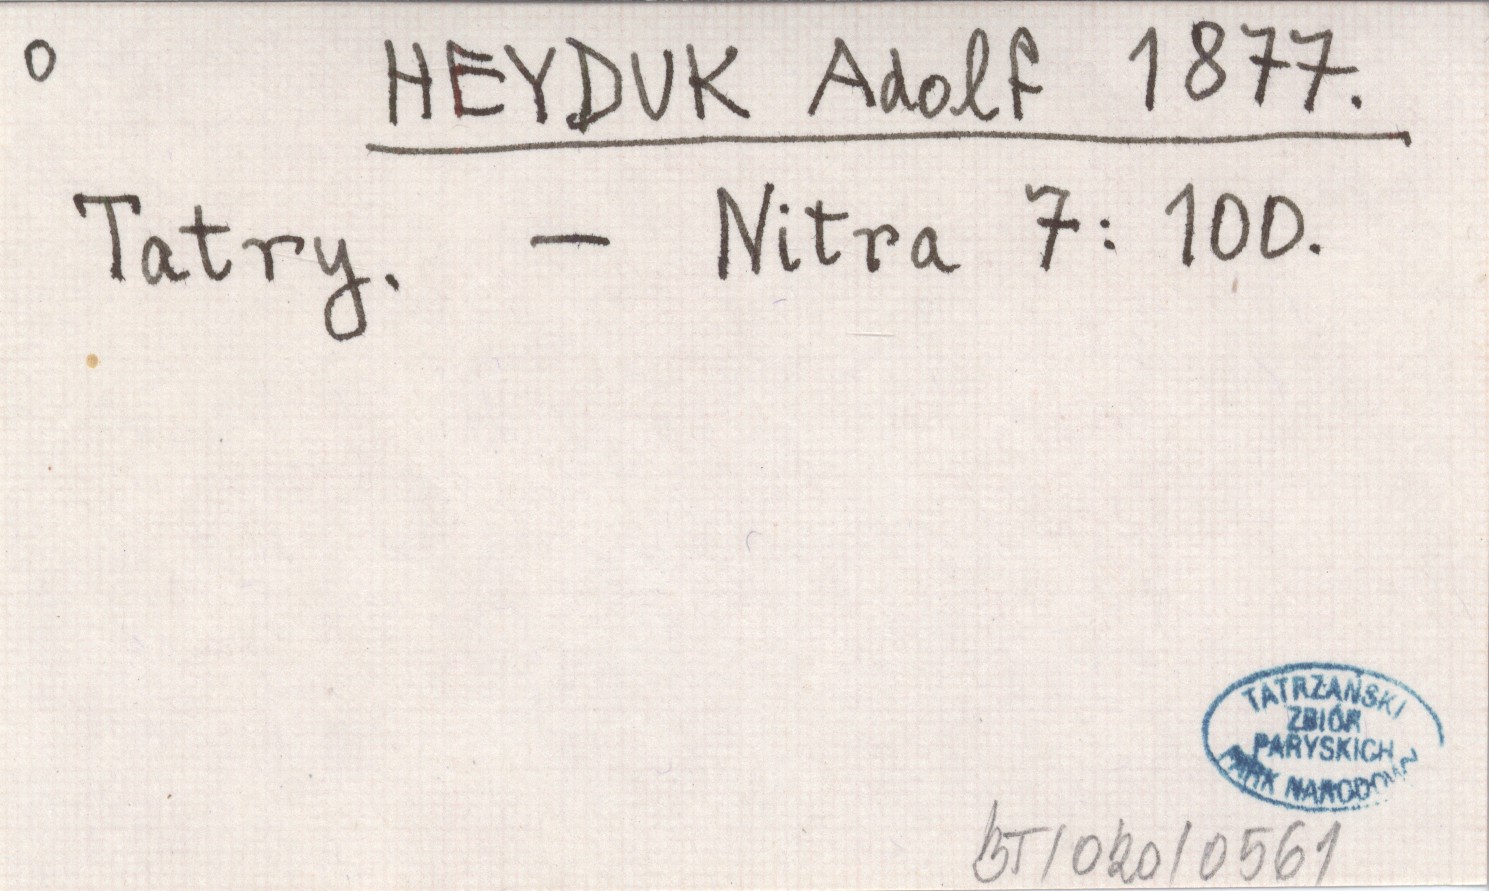 o HEYDUK Adolf 1877.
Tatry. – Nitra 7: 100.
TATRZAŃSKI
ZBIÓR
PARYSKICH
PARK NARODOWY
BT/020/0561